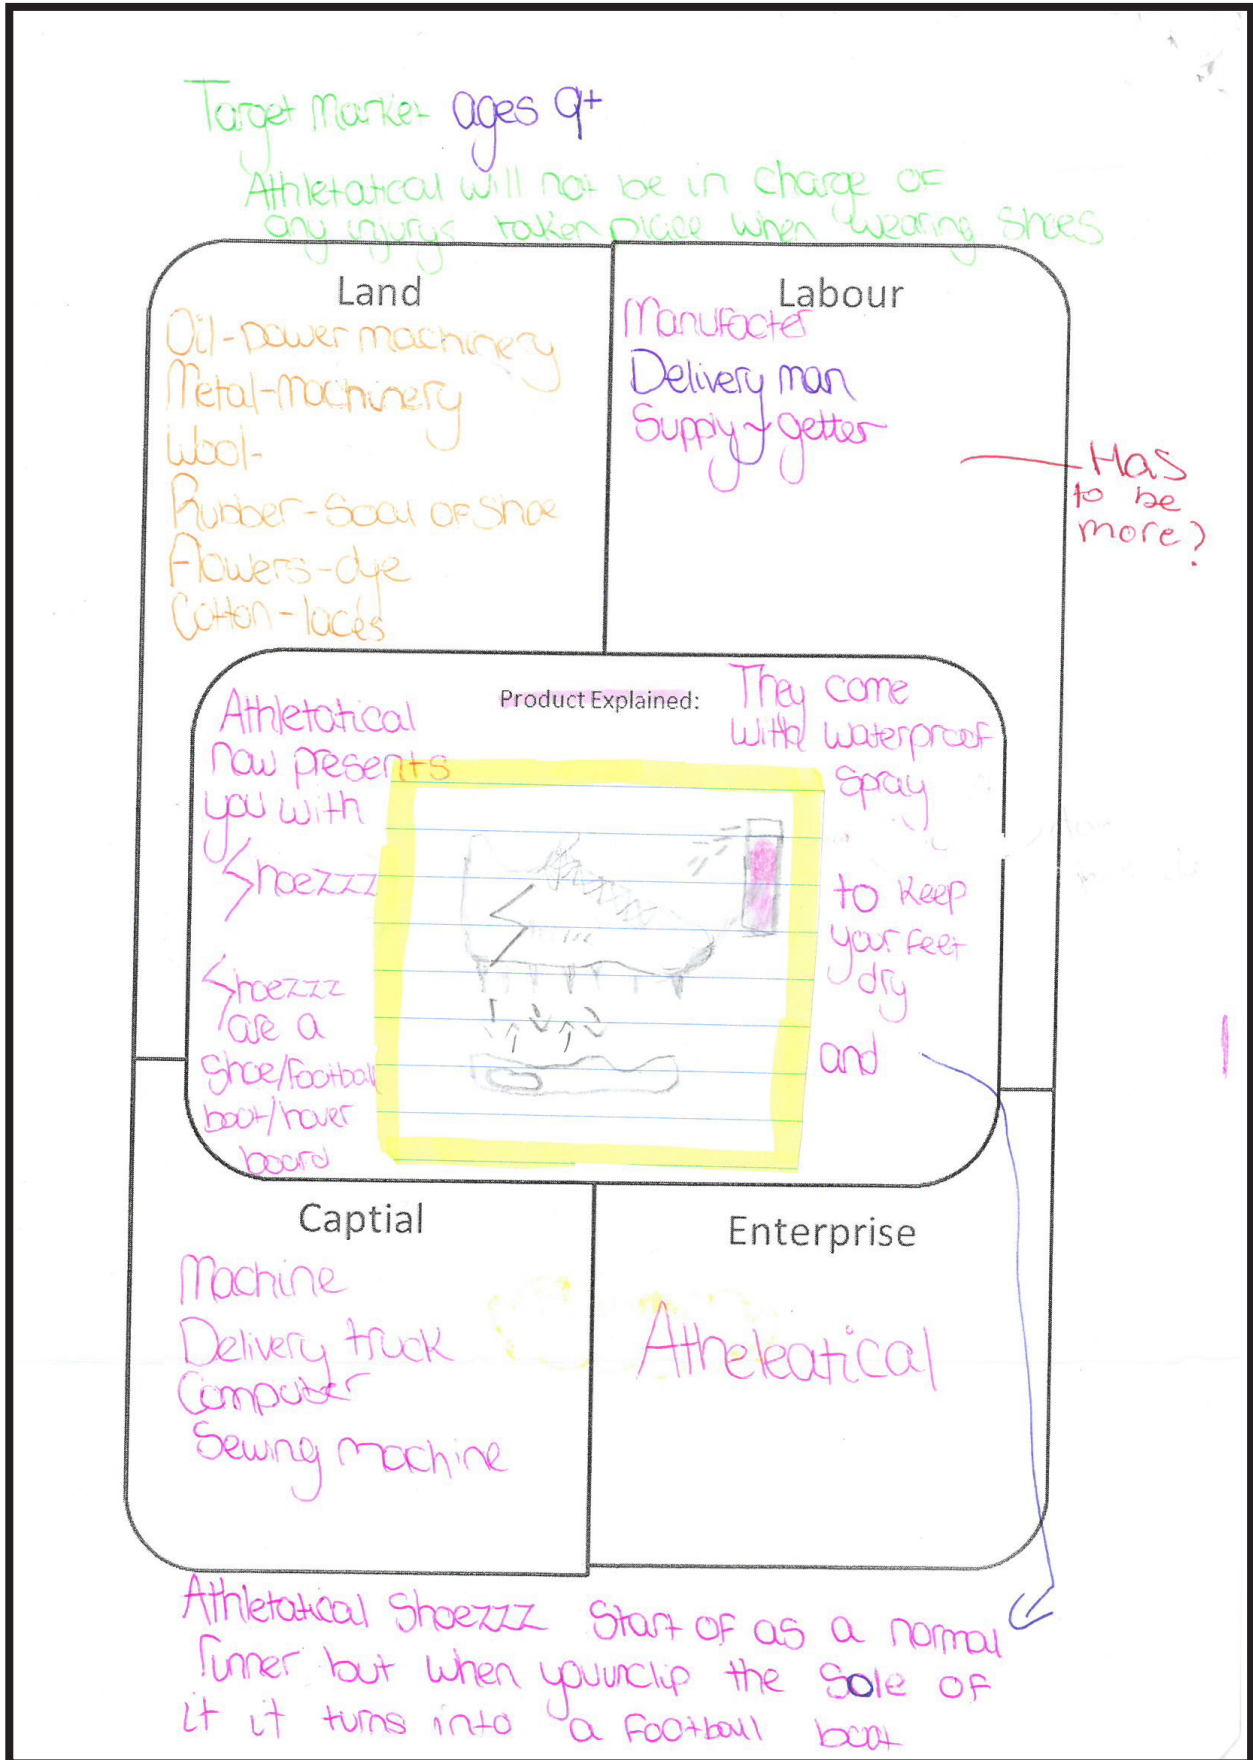 Target Market ages 9+
Athletatical will not be in charge of
any injurys taken place when wearing shoes
Land
Oil-power machinery
Metal-machinery
Wool-
Rubber-Soal of Shoe
Flowers-dye
Cotton-laces
Labour
Manufacter
Delivery man
Supply-getter
Has
to be
more?
Product Explained:
Athletatical
now presents
you with
Shoezzz
Shoezzz
are a
Shoe/football
boot/hover
board
They come
with waterproof
spray
to keep
your feet
dry
and
Captial
Machine
Delivery truck
Computer
Sewing machine
Enterprise
Atheleatical
Athletatical Shoezzz Start of as a normal
runner but when youunclip the Sole of
it it turns into a football boot